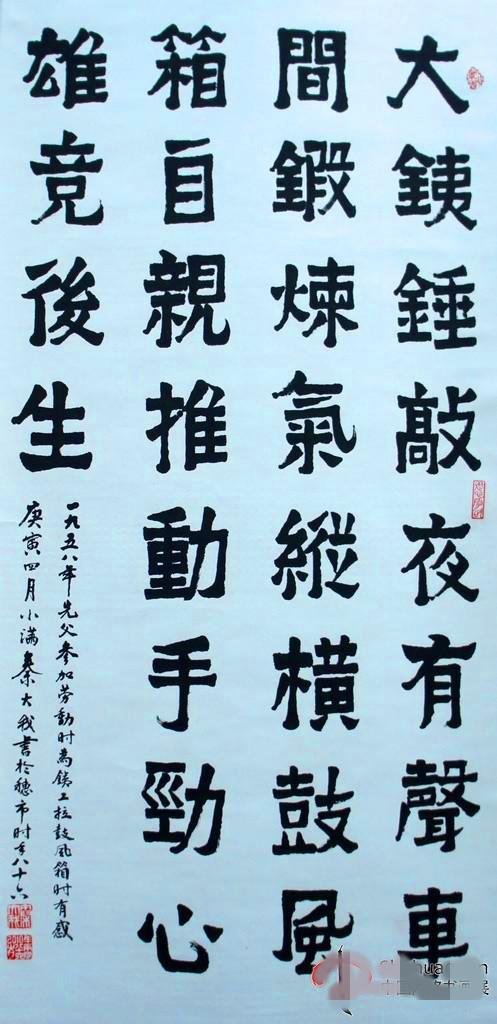 大銕錘敲夜有聲車
間鍛煉氣縱橫鼓風
箱自親推動手勁心
雄竞後生
一九五八年先父参加劳動时為銕工拉鼓风箱时有感
庚寅四月小满秦大我書於穗市时年八十六